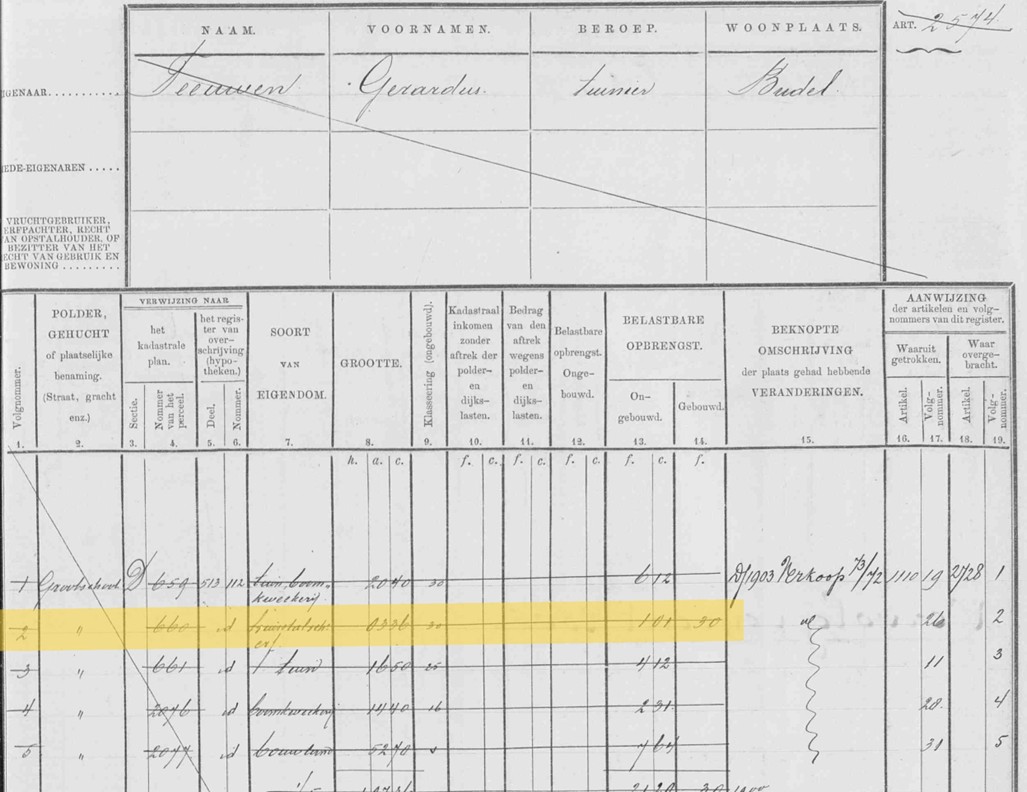 NAAM. VOORNAMEN. BEROEP. WOONPLAATS. ART. 2574.
IGENAAR.......... Teeuwen Gerardus. tuinier Budel.
EDE-EIGENAREN .....
VRUCHTGEBRUIKER,
ERFPACHTER, RECHT
AN OPSTALHOUDER, OF
BEZITTER VAN HET
ECHT VAN GEBRUIK EN
BEWONING .........
Volgnommer.
1.
POLDER,
GEHUCHT
of plaatselijke
benaming.
(Straat, gracht
enz.)
2.
VERWIJZING NAAR
het
kadastrale
plan.
Sectie.
3.
Nommer
van het
perceel.
4.
het regis-
ter van
over-
schrijving
(hypo-
theken.)
Deel.
5.
Nommer.
6.
SOORT
VAN
EIGENDOM.
7.
GROOTTE.
8.
Klasseering (ongebouwd).
9.
Kadastraal
inkomen
zonder
aftrek der
polder-
en
dijks-
lasten.
10.
Bedrag
van den
aftrek
wegens
polder-
en
dijks-
lasten.
11.
Belastbare
opbrengst.
Onge-
bouwd.
12.
BELASTBARE
OPBRENGST.
On-
gebouwd.
13.
Gebouwd.
14.
BEKNOPTE
OMSCHRIJVING
der plaats gehad hebbende
VERANDERINGEN.
15.
AANWIJZING
der artikelen en volg-
nommers van dit register.
Waaruit
getrokken.
Artikel.
16.
Volg-
nommer.
17.
Waar
overge-
bracht.
Artikel.
18.
Volg-
nommer.
19.
h. a. c. f. c. f. c. f. c. f. c. f.
1 Grootschoot D 659 513 112 tuin boom- 20 40 30 6 12 Dj 1903 Verkoop 73/72 1110 19 2728 1
kweekerij
2 " 660 id 03 36 30 1 01 30 id 26 2
3 " 661 id tuin 16 50 25 4 12 11 3
4 " 2076 id boomkweekerij 14 40 16 2 31 28 4
5 " 2077 id bouwland 52 70 7 64 31 5